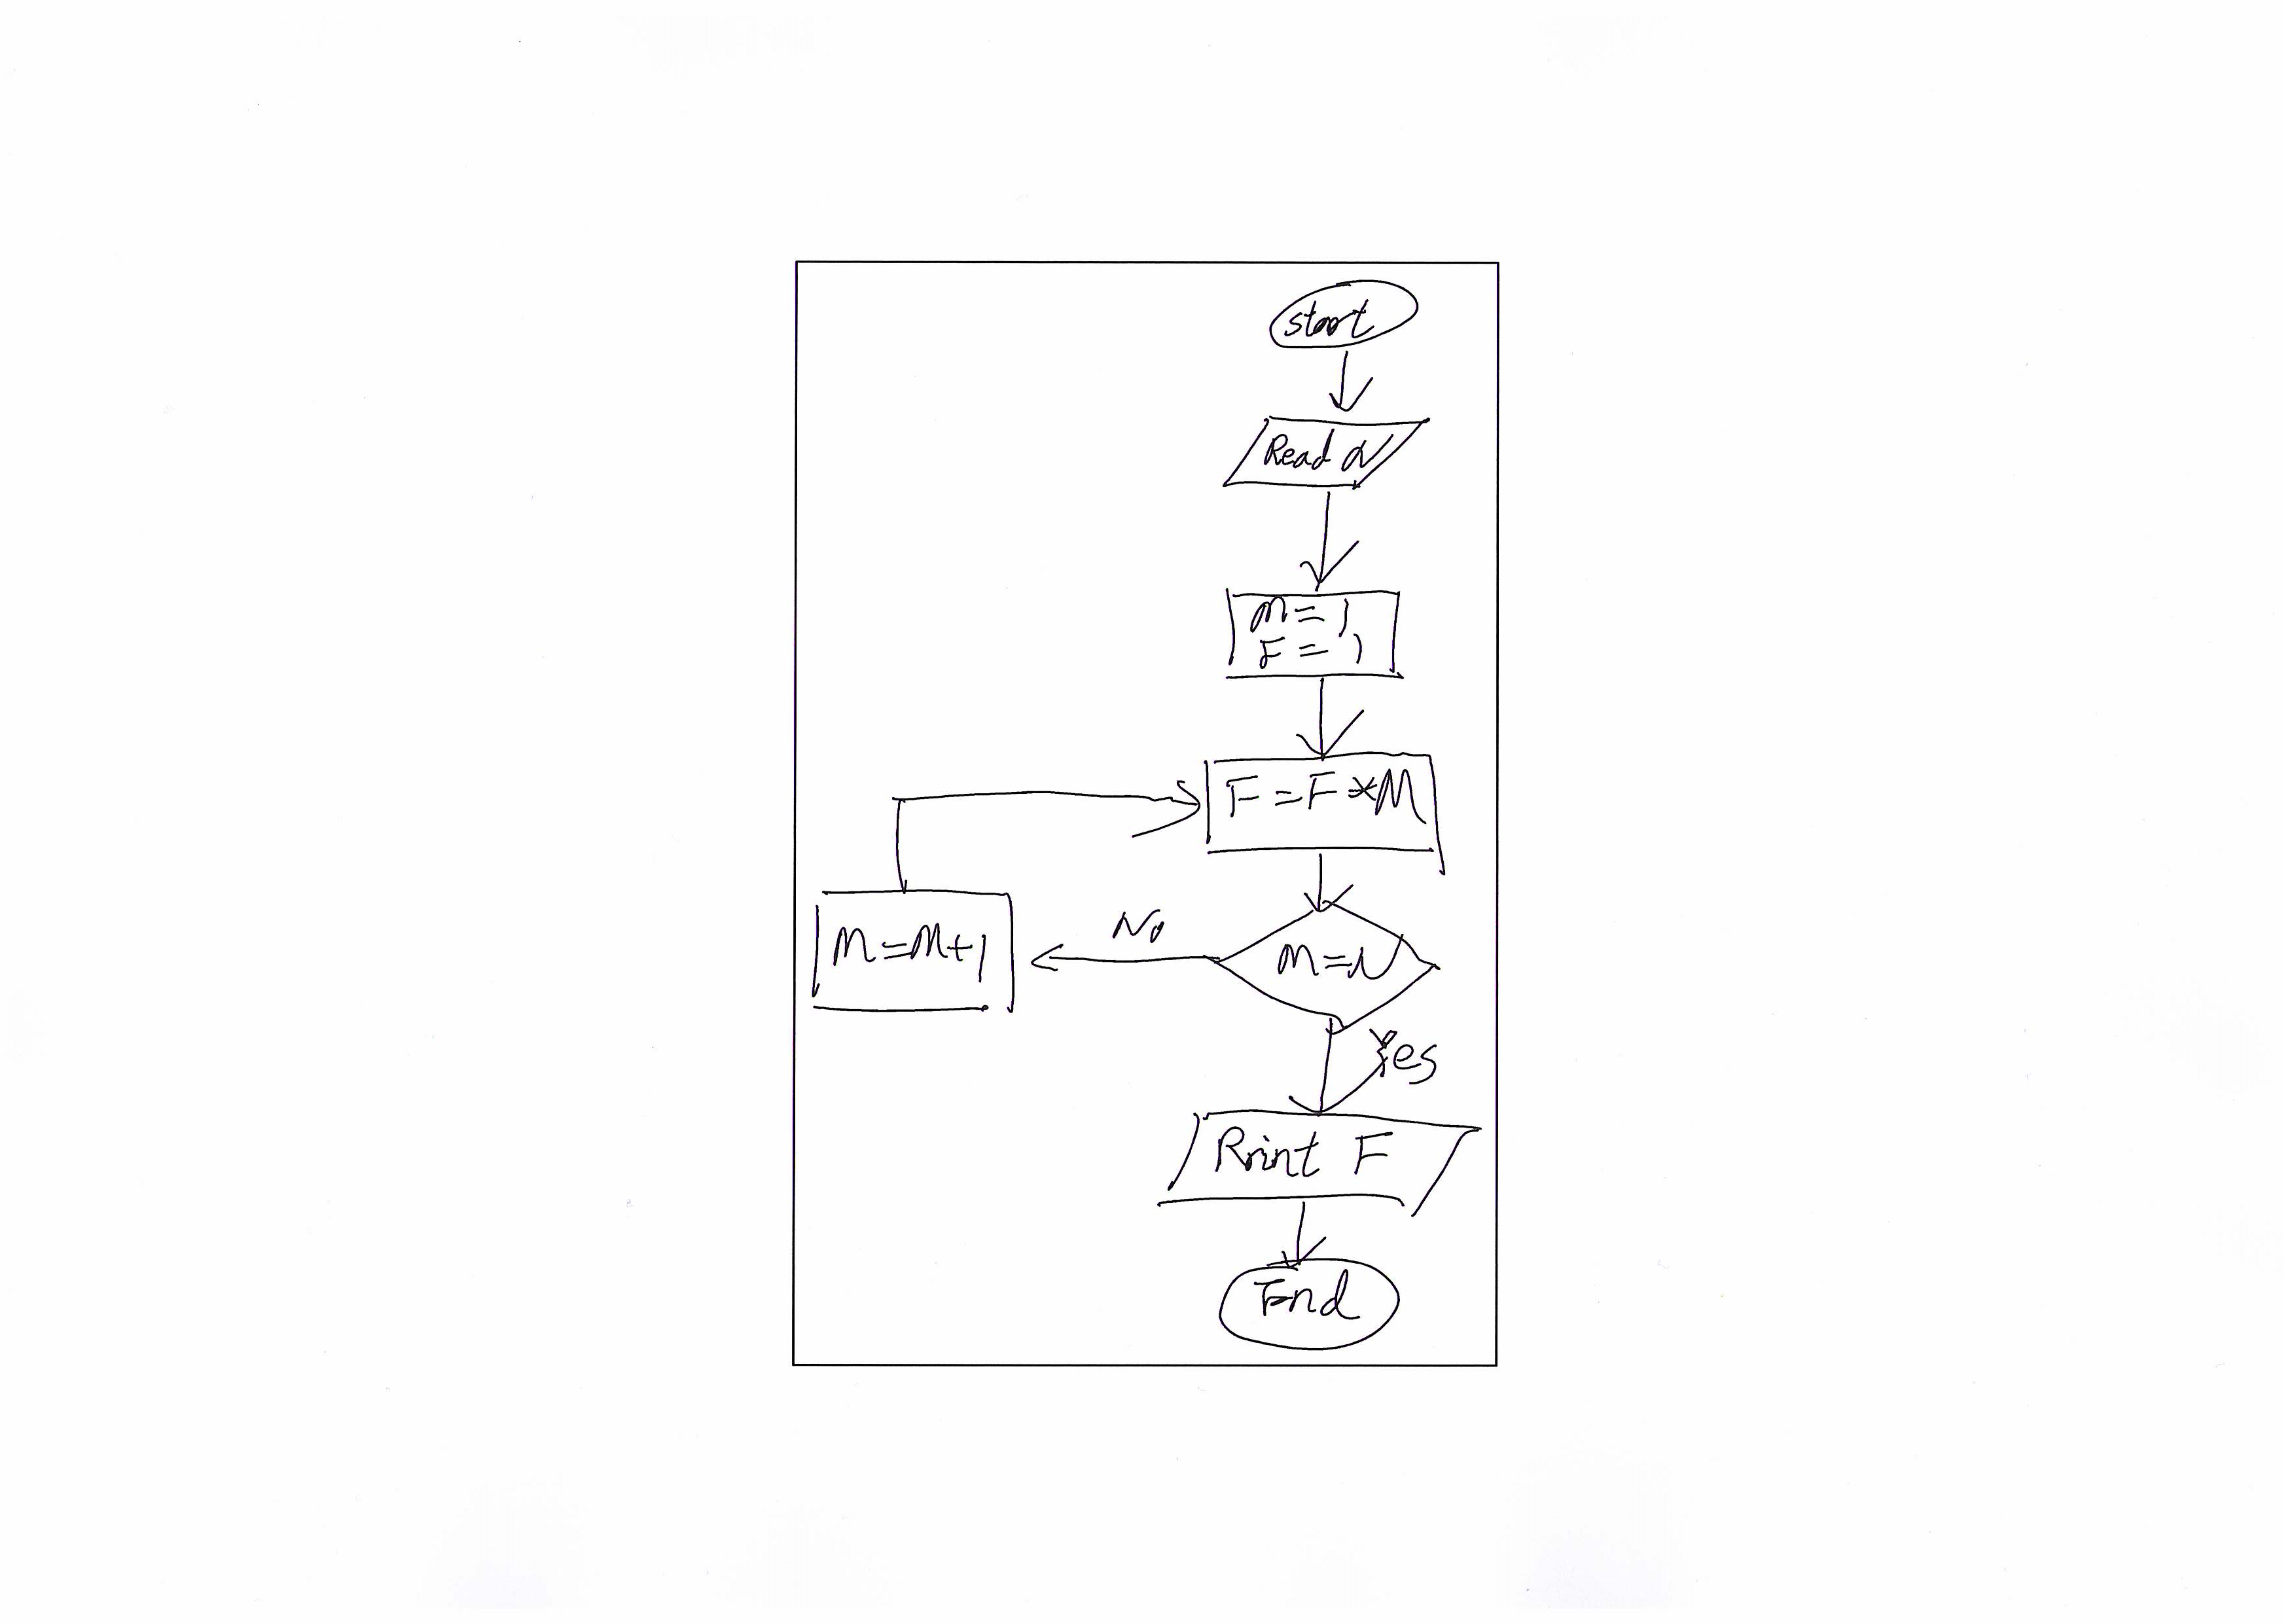 start
Read N
M = 1
F = 1
F = F * M
M = N
No
M = M + 1
Yes
Print F
End